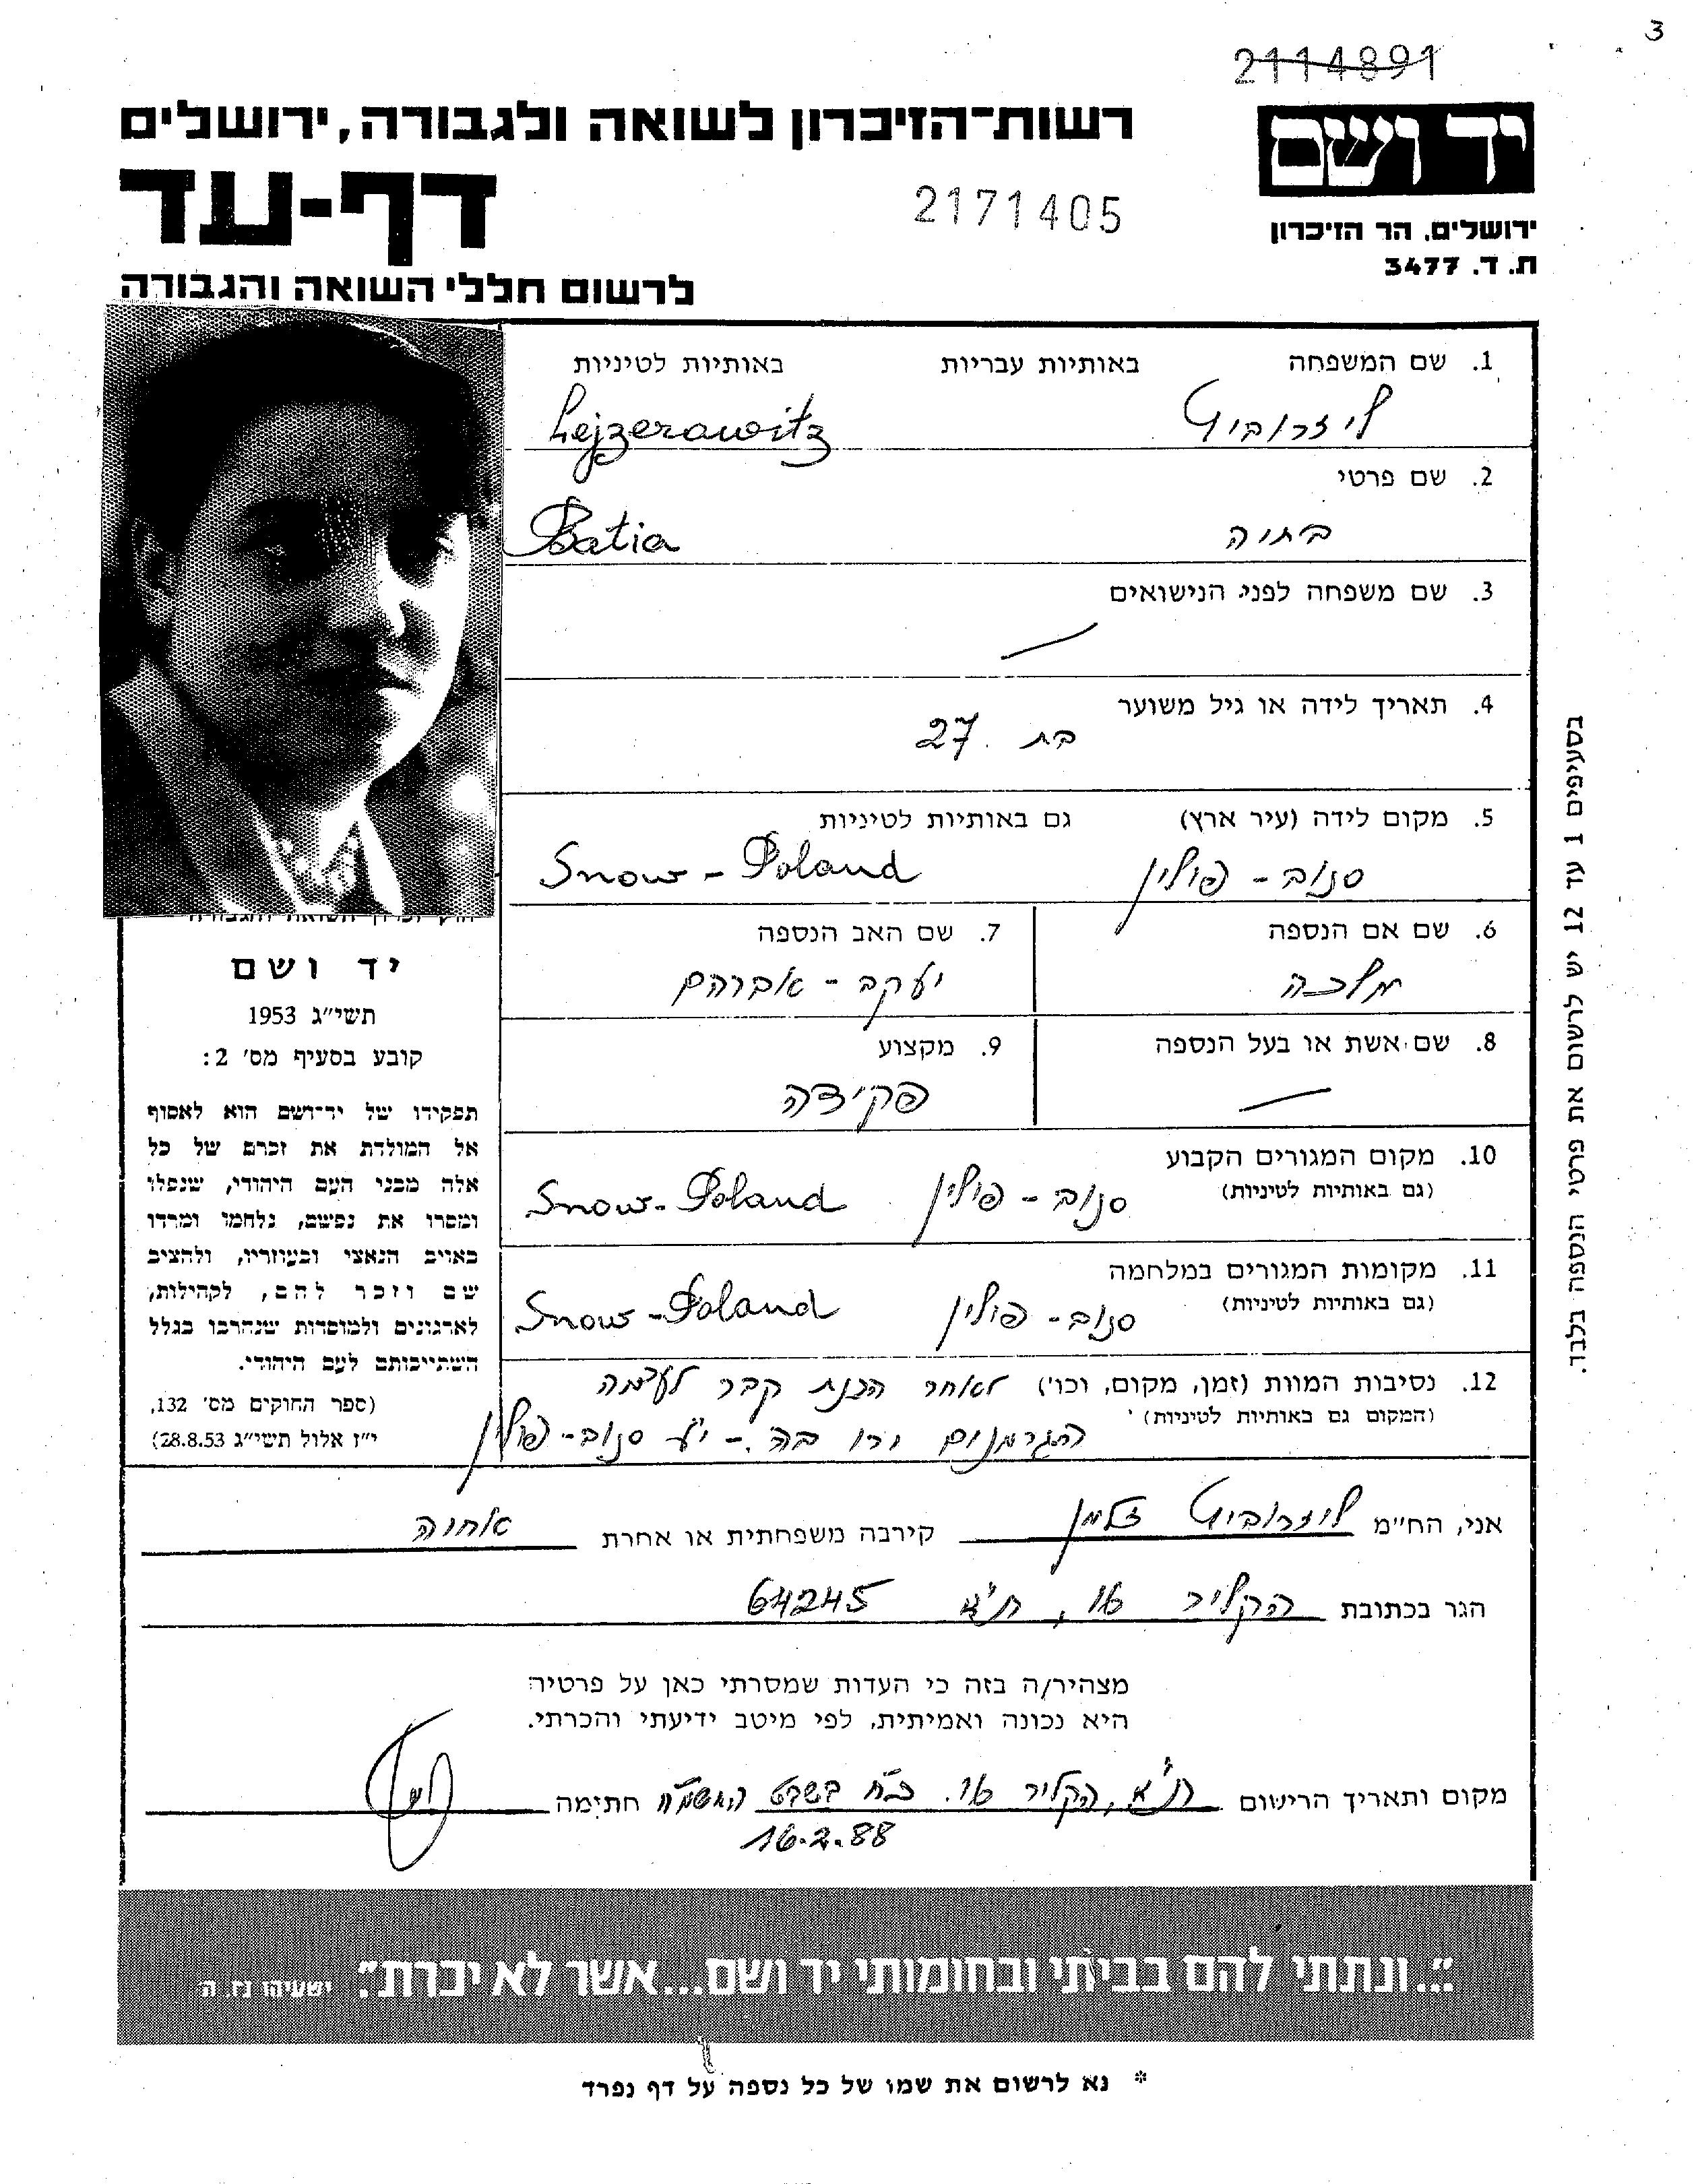 3
2114891
יד ושם
רשות־הזיכרון לשואה ולגבורה, ירושלים
דף-עד
2171405
ירושלים, הר הזיכרון
ת. ד. 3477
לרשום חללי השואה והגבורה
1. שם המשפחה באותיות עבריות באותיות לטיניות
ליזרוביץ Lejzerowitz
2. שם פרטי
בתיה Batia
3. שם משפחה לפני הנישואים
—
4. תאריך לידה או גיל משוער
בת 27
5. מקום לידה (עיר ארץ) גם באותיות לטיניות
סנוב - פולין Snow - Poland
6. שם אם הנספה 7. שם האב הנספה
מלכה יעקב - אברהם
8. שם אשת או בעל הנספה 9. מקצוע
— פקידה
10. מקום המגורים הקבוע
(גם באותיות לטיניות) סנוב - פולין Snow - Poland
11. מקומות המגורים במלחמה
(גם באותיות לטיניות) סנוב - פולין Snow - Poland
12. נסיבות המוות (זמן, מקום, וכו') לאחר הכנת קבר לעצמה
(המקום גם באותיות לטיניות) הגרמנים ירו בה. - סנוב - פולין
יד ושם
תשי״ג 1953
קובע בסעיף מס׳ 2:
תפקידו של יד־ושם הוא לאסוף
אל המולדת את זכרם של כל
אלה מבני העם היהודי, שנפלו
ומסרו את נפשם, נלחמו ומרדו
באויב הנאצי ובעוזריו, ולהציב
שם וזכר להם, לקהילות,
לארגונים ולמוסדות שנהרבו בגלל
השתייכותם לעם היהודי.
(ספר החוקים מס׳ 132,
י״ז אלול תשי״ג 28.8.53)
בסעיפים 1 עד 12 יש לרשום את פרטי הניספה בלבד.
אני, הח״מ ליזרוביץ זלמן קירבה משפחתית או אחרת אחיה
הגר בכתובת הקליר 16, ת״א 64245
מצהיר/ה בזה כי העדות שמסרתי כאן על פרטיה
היא נכונה ואמיתית, לפי מיטב ידיעתי והכרתי.
מקום ותאריך הרישום ת״א, הקליר 16. כ״ח בשבט התשמ״ח חתימה
16.2.88
״...ונתתי להם בביתי ובחומותי יד ושם...אשר לא יכרת״. ישעיהו נו, ה
* נא לרשום את שמו של כל נספה על דף נפרד